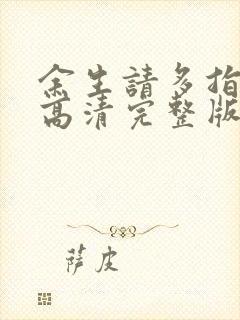 余生請多指
高清完整版
萨皮